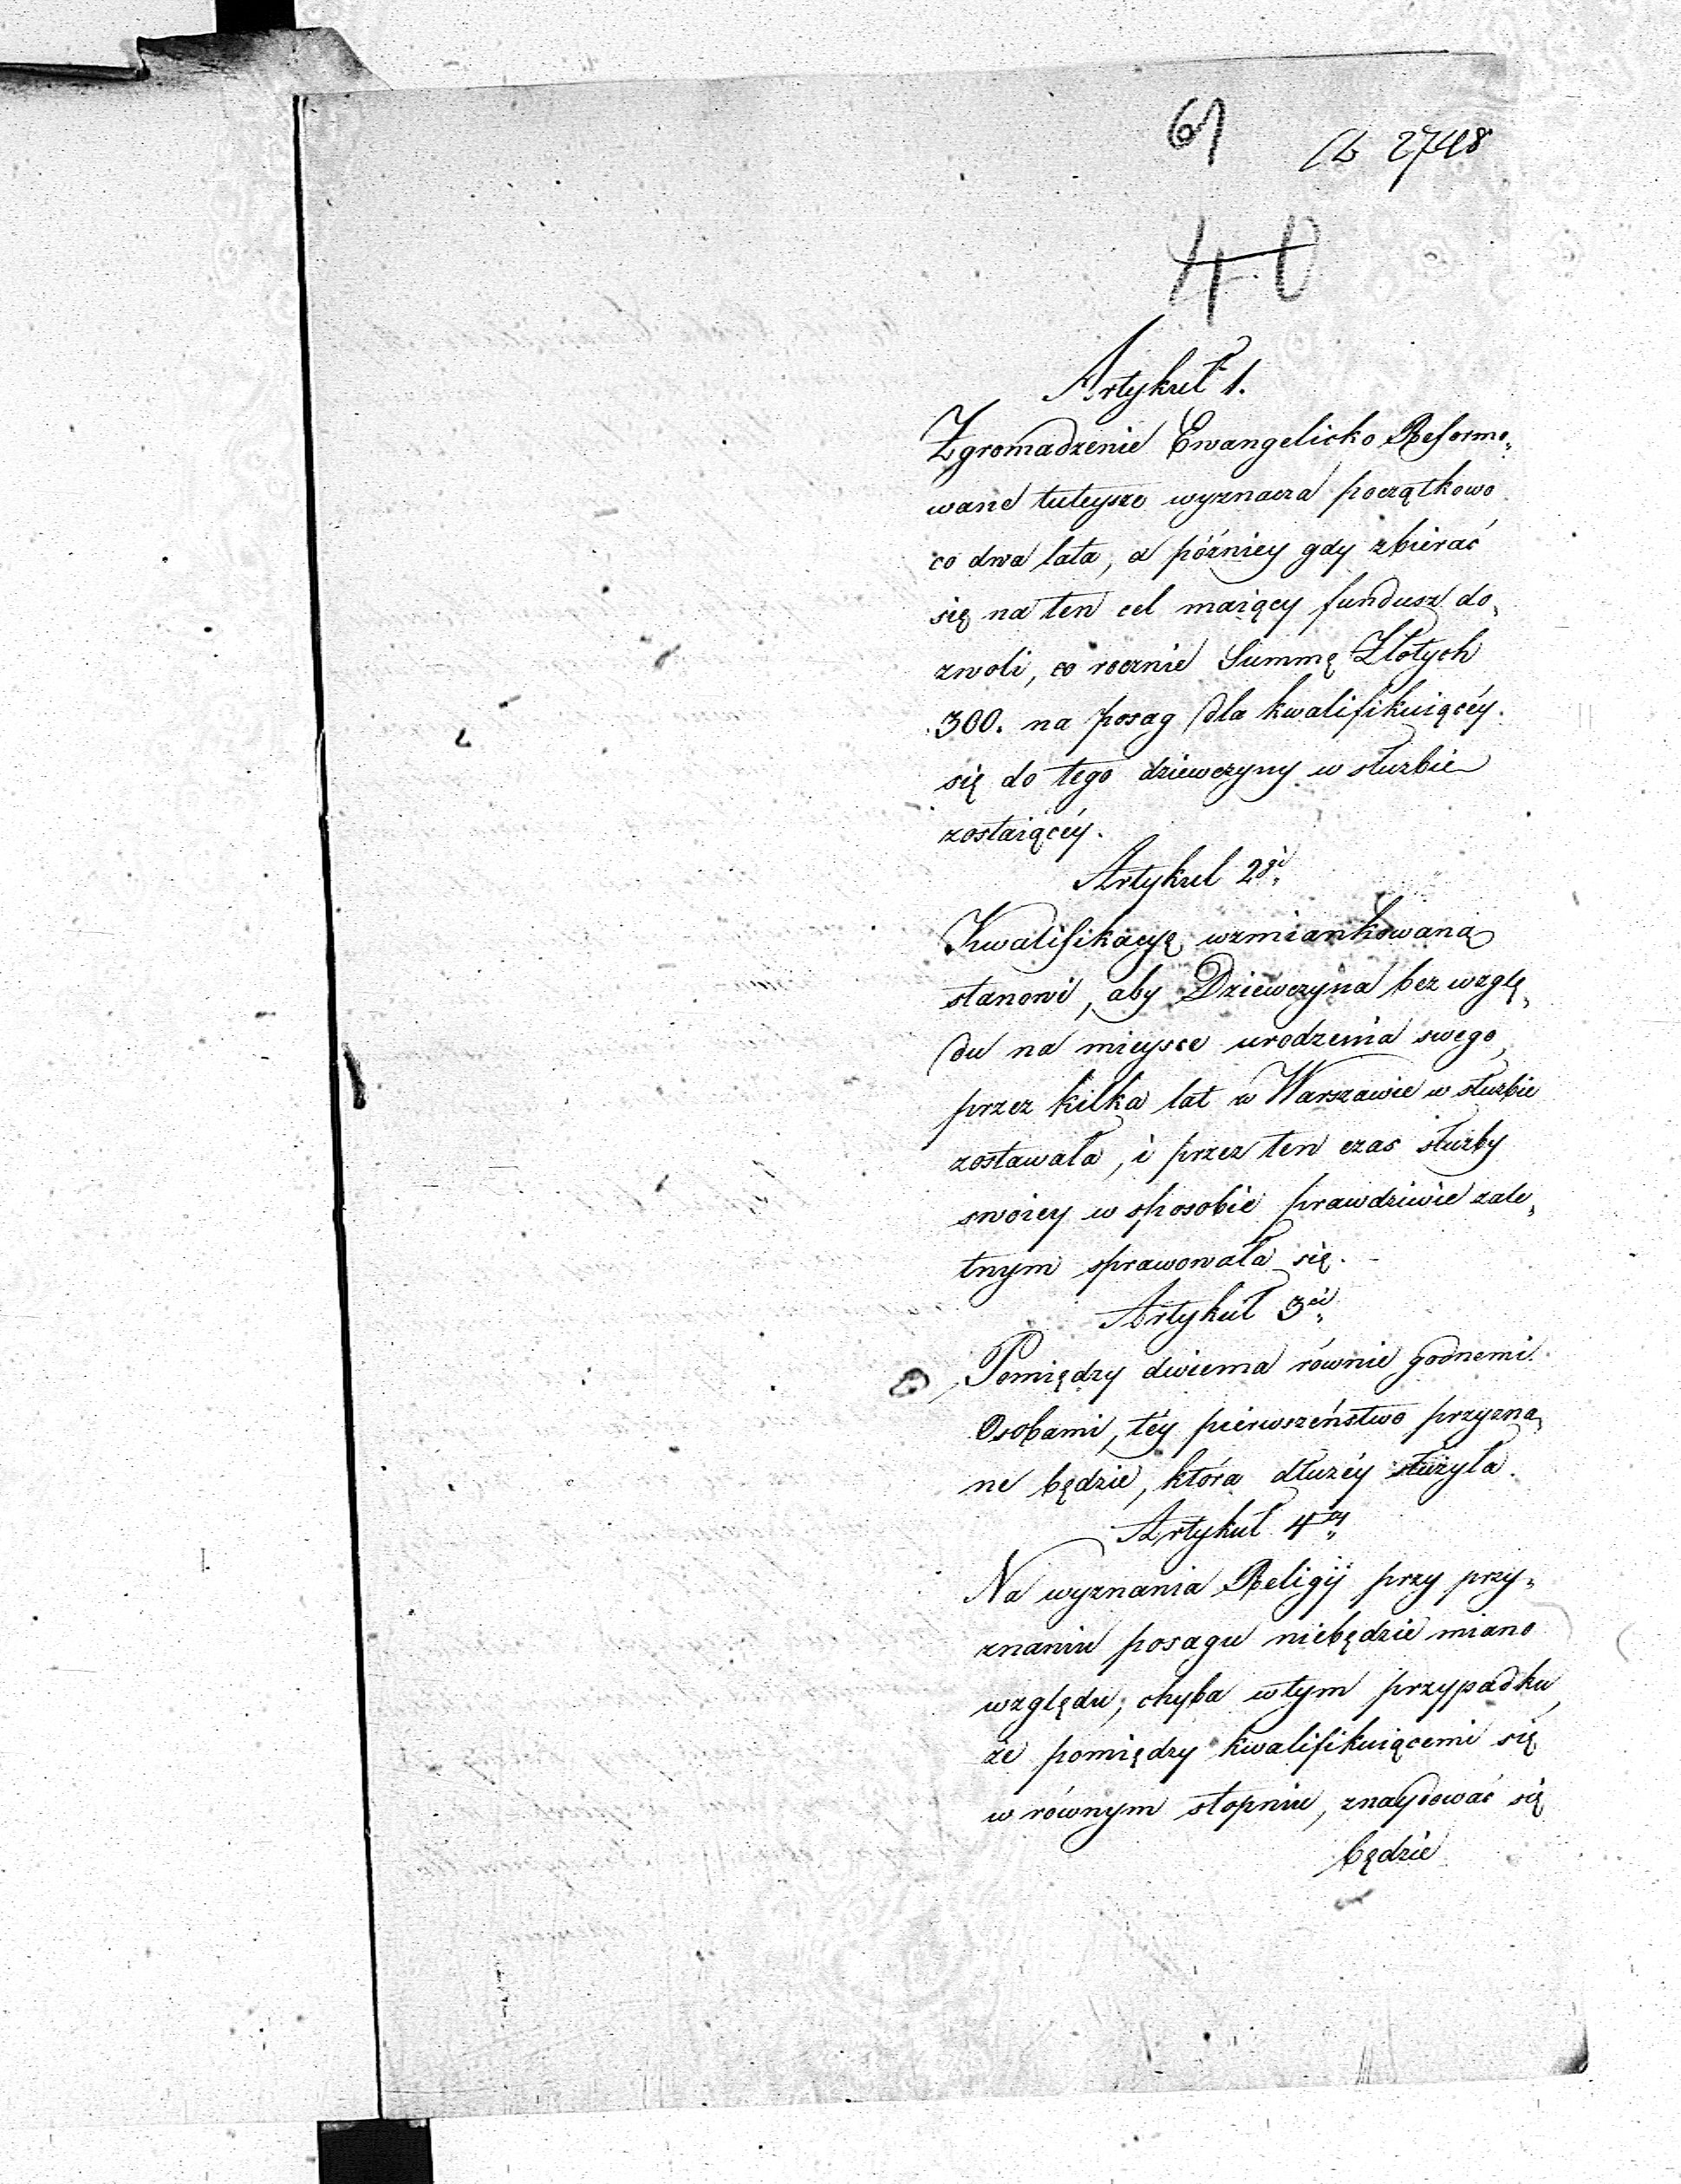 61
2748
40
Artykuł 1.
Zgromadzenie Ewangelicko Reformo„
wane tuteysze wyznacza początkowo
co dwa lata, a późniey gdy zbierać
się na ten cel maiący fundusz do„
zwoli, co rocznie Summę Złotych
300. na posag dla kwalifikuiącéy
się do tego dziewczyny w służbie
zostaiącéy.
Artykuł 2gi
Kwalifikacyę wzmiankowaną
stanowi, aby Dziewczyna bez wzglę„
du na mieysce urodzenia swego,
przez kilka lat w Warszawie w służbie
zostawała, i przez ten czas służby
swoiey w sposobie prawdziwie zale„
tnym sprawowała się. -
Artykuł 3ci
Pomiędzy dwiema równie godnemi
Osobami, téy pierwszeństwo przyzna„
ne będzie, która dłużéy służyła.
Artykuł 4ty
Na wyznania Religij przy przy„
znaniu posagu niebędzie miano
względu, chyba w tym przypadku,
że pomiędzy kwalifikuiącemi się
w równym stopniu, znaydować się
będzie